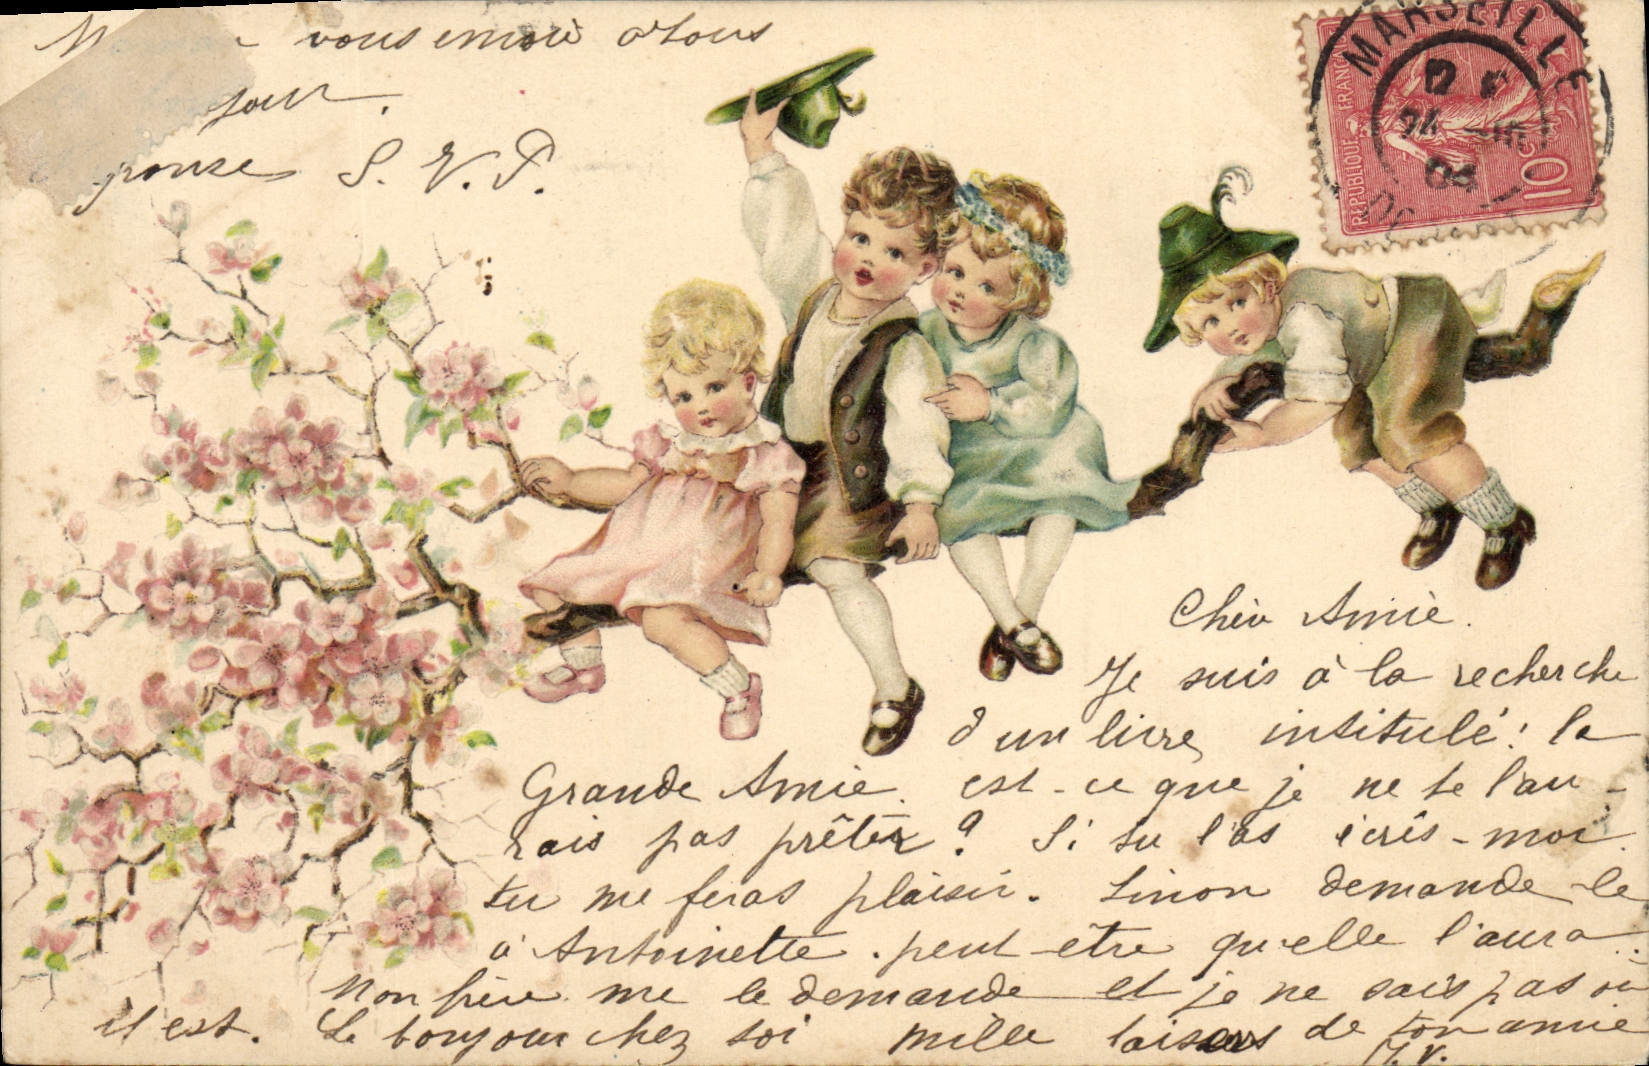 vous envoie à tous
jour.
ponse S. V. P.
MARSEILLE
REPUBLIQUE FRANÇAISE
10 C
Chère Amie.
Je suis à la recherche
d'un livre intitulé : la
Grande Amie. est-ce que je ne te l'au-
rais pas prêter ? Si tu l'as écris-moi
tu me feras plaisir. Sinon demande-le
à Antoinette. peut-être qu'elle l'aura.
Mon frère me le demande et je ne sais pas où
il est. Le bonjour chez toi Mille baisers de ton amie
J. V.